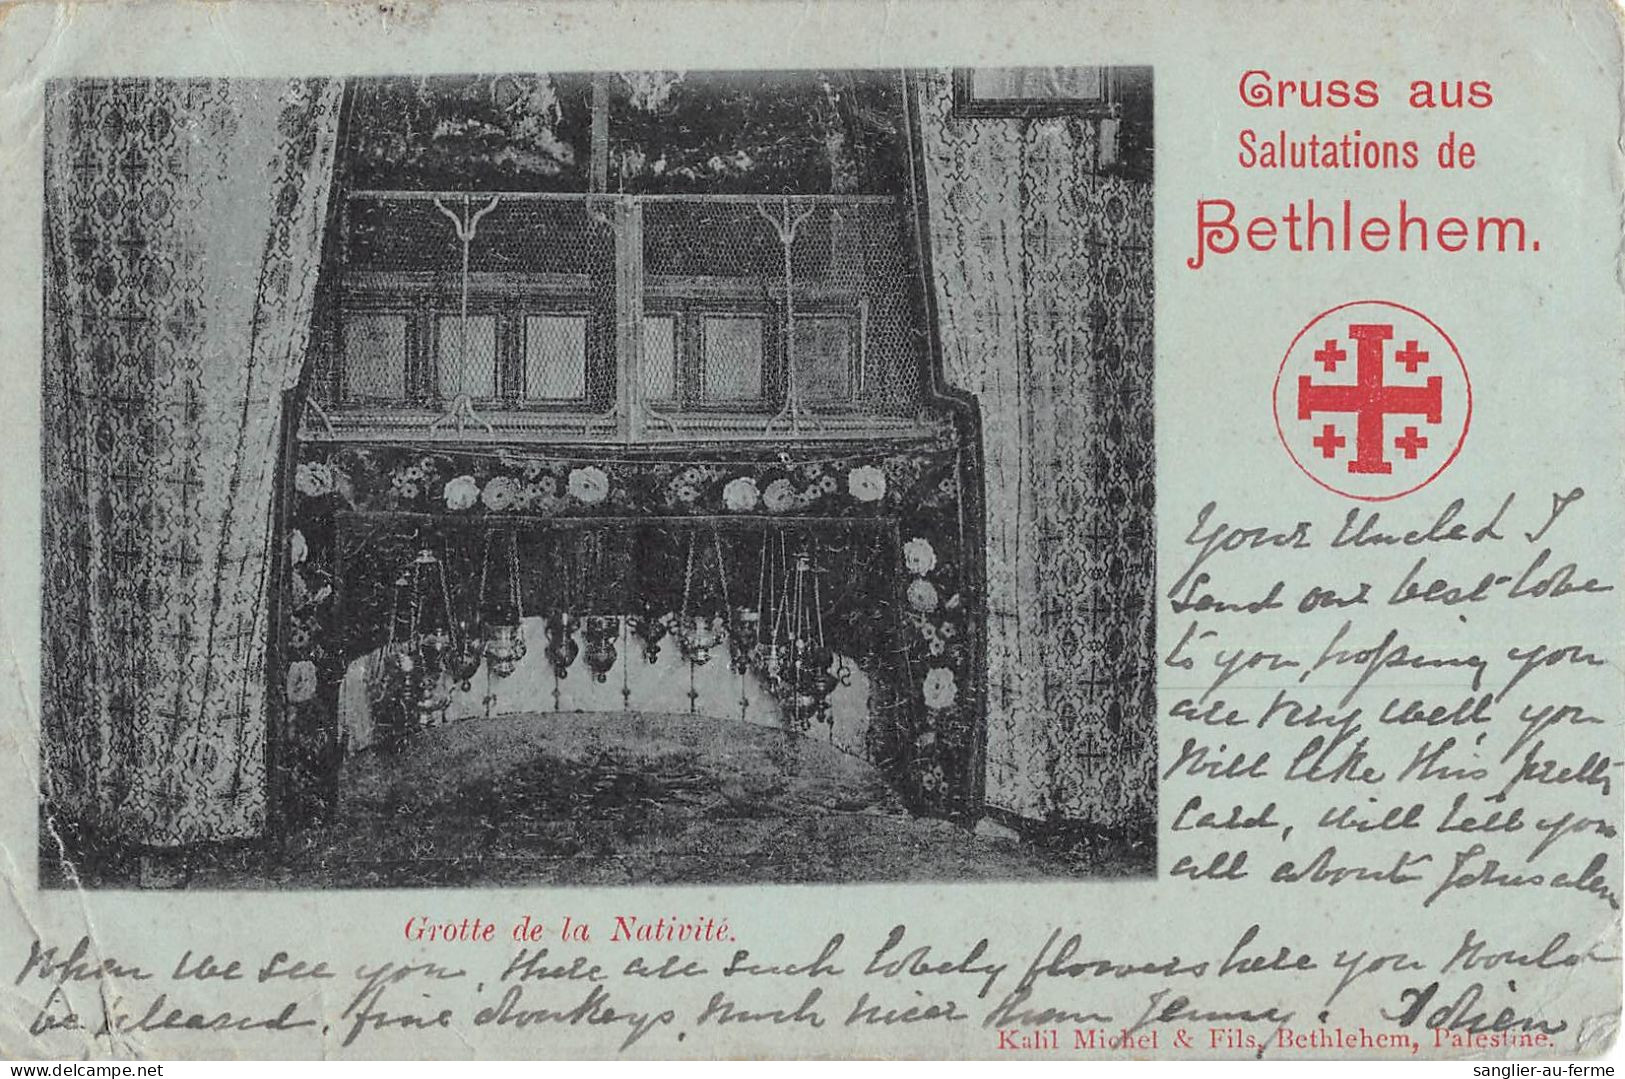 Gruss aus
Salutations de
Bethlehem.
Your Uncle & I
send our best love
to you hopping you
are very well, you
will like this pretty
card, will tell you
all about Jerusalem
Grotte de la Nativité.
When we see you, there are such lovely flowers here you would
be pleased, fine donkeys, much nicer than Jenny.
Kalil Michel & Fils, Bethlehem, Palestine.
www.delcampe.net
sanglier-au-ferme